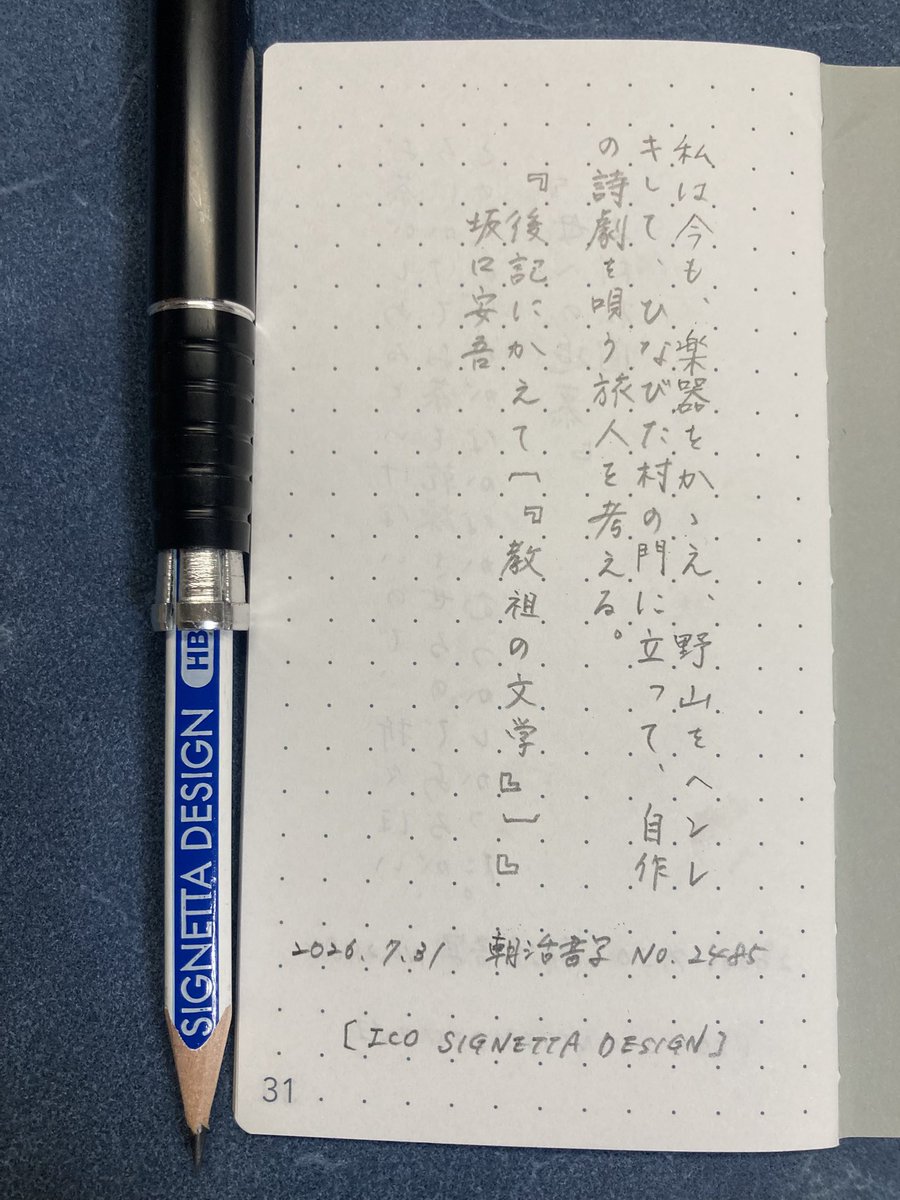 私は今も、楽器をかゝえ、野山をヘンレ
キして、ひなびた村の門に立って、自作
の詩劇を唄う旅人を考える。
『後記にかえて〔『教祖の文学』〕』
坂口安吾
2026.7.31 朝活書写 No.2485
[ICO SIGNETTA DESIGN]
31
SIGNETTA DESIGN HB